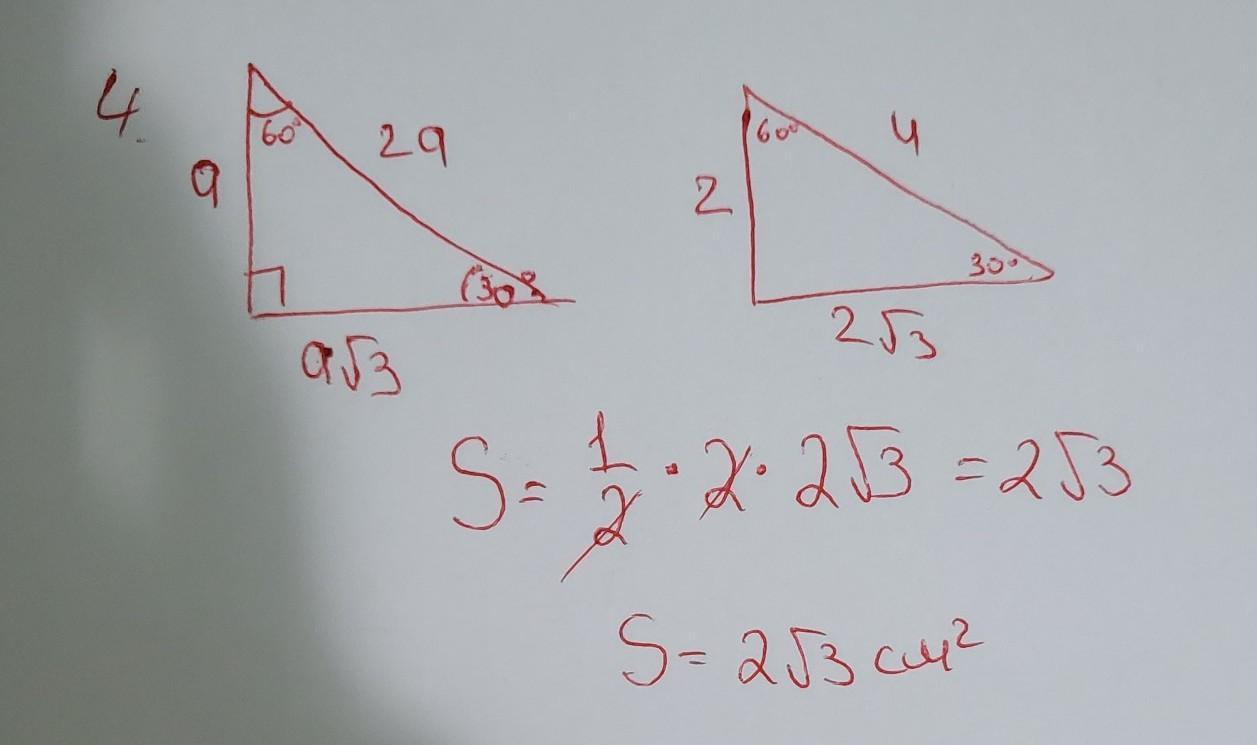 4.
60°
2a
a
30°
a√3
60°
4
2
30°
2√3
S = 1/2 · 2 · 2√3 = 2√3
S = 2√3 см²